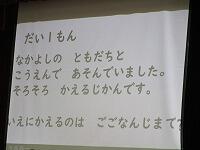 だい1もん
なかよしの ともだちと
こうえんで あそんでいました。
そろそろ かえるじかんです。
いえにかえるのは ごごなんじまで